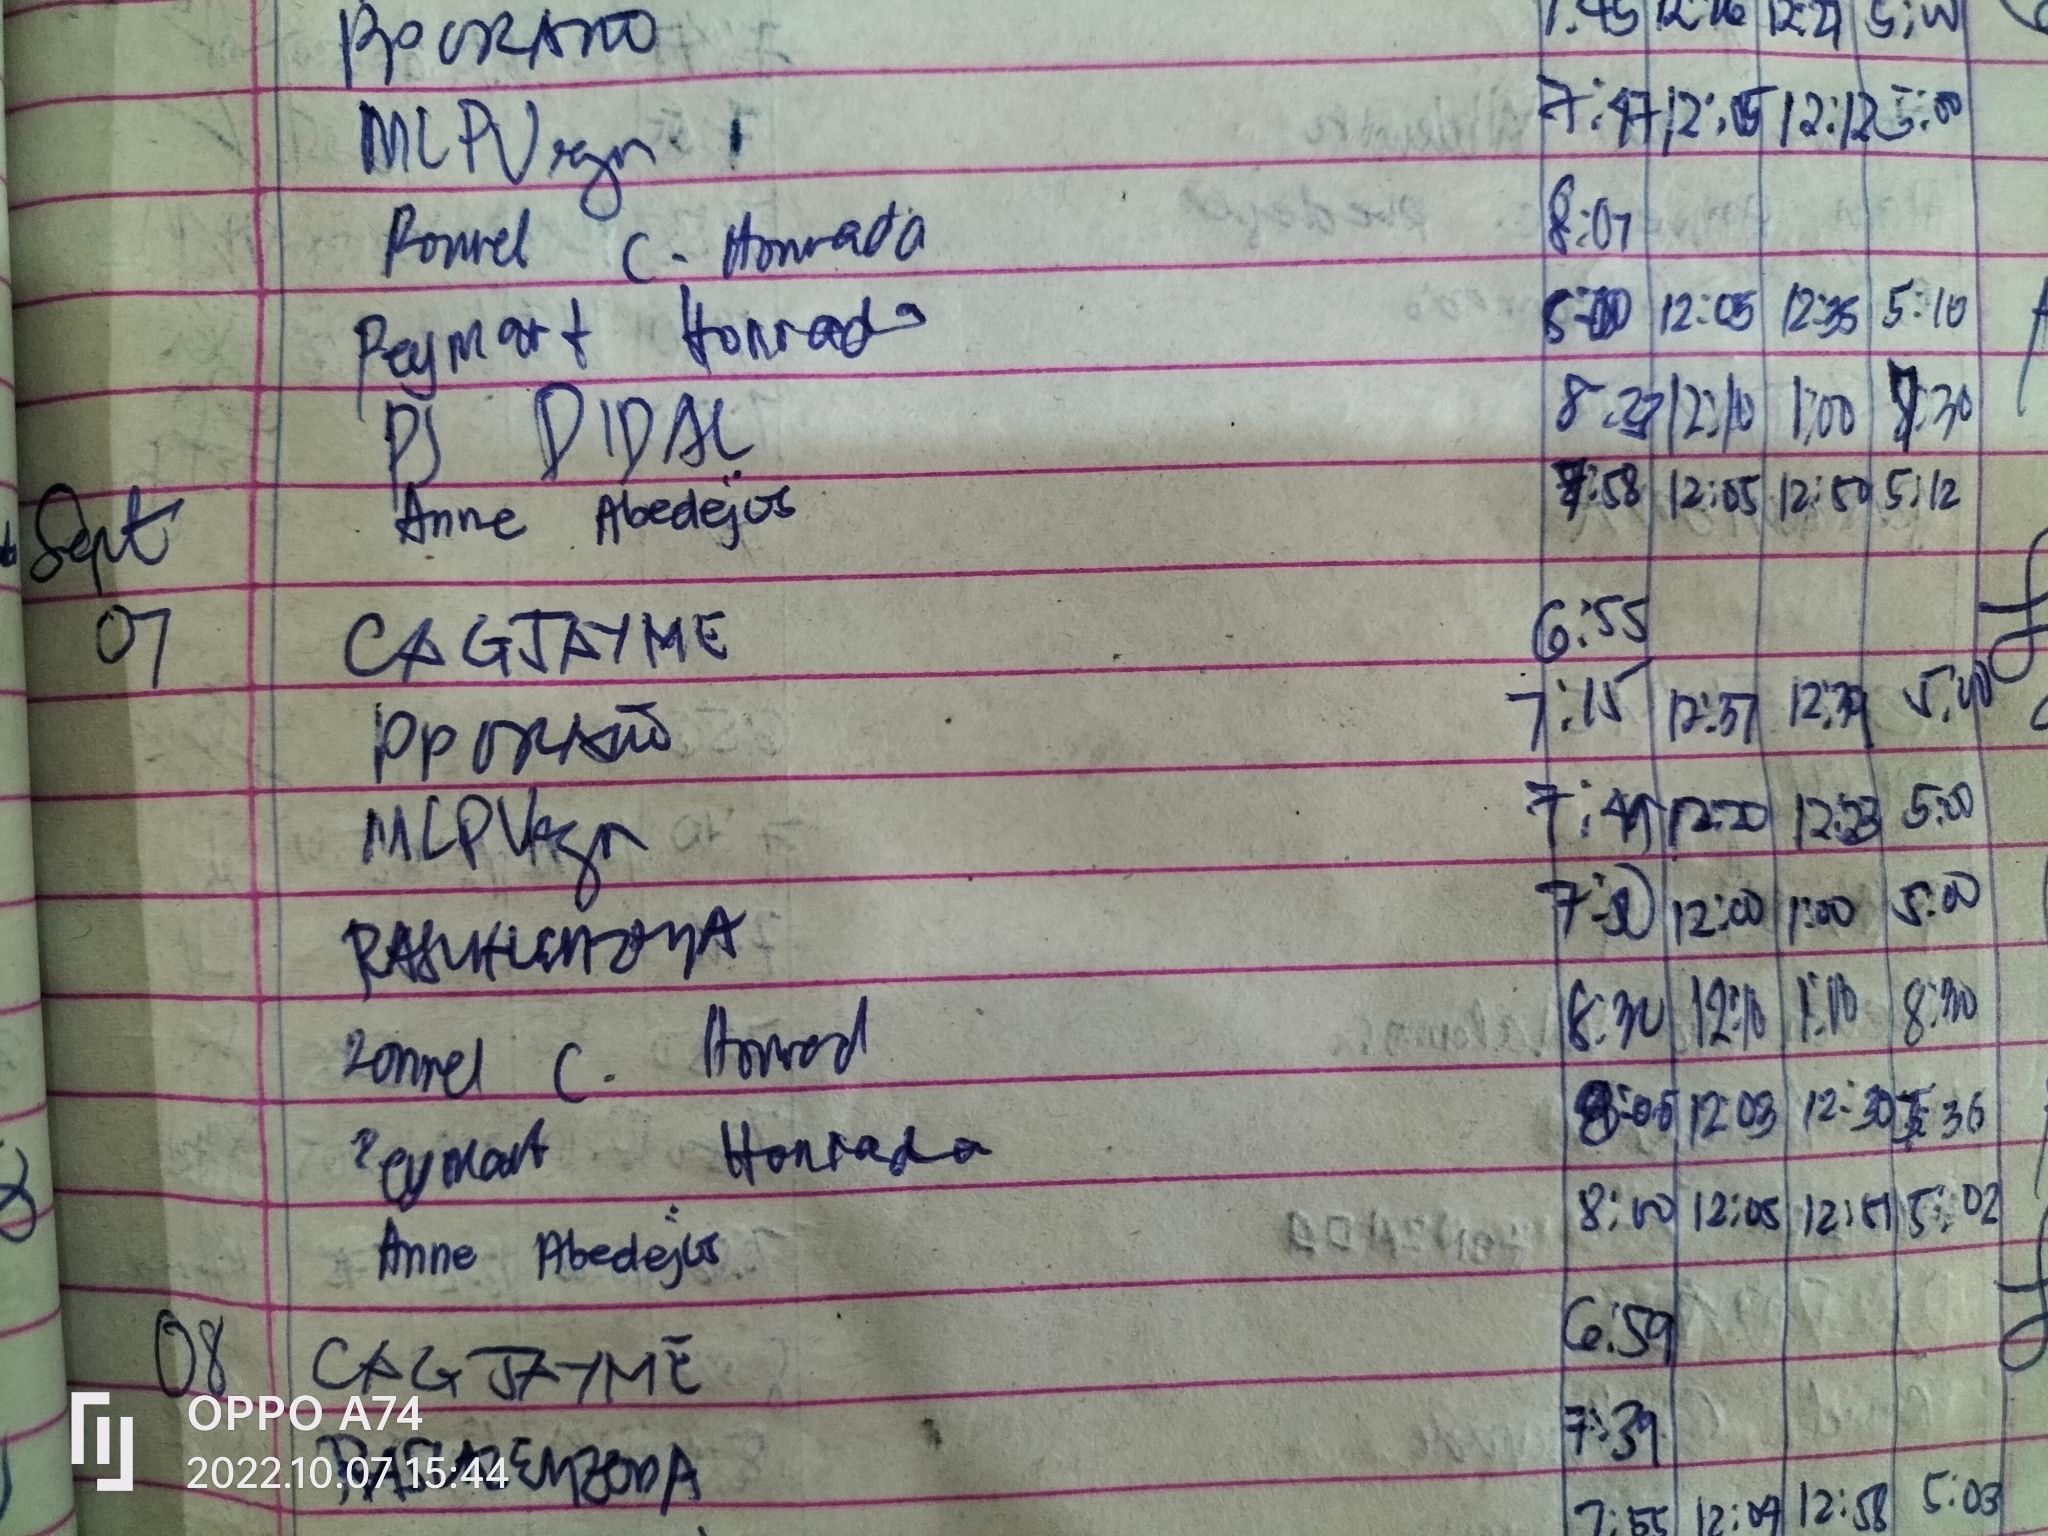 PPORAÑO 7:45 12:16 12:21 5:00
MLPVrgn 7:47 12:05 12:12 5:00
Ronnel C. Honrada 8:07
Reymart Honrada 12:05 12:35 5:10
PJ DIDAL 8:23 12:10 1:00 :30
Anne Abedejos 7:58 12:05 12:50 5:12
Sept
07 CAGJAYME 6:55
PPORAÑO 7:15 12:37 12:39 5:00
MLPVrgn 7:49 12:20 12:23 5:00
12:00 1:00 5:00
Ronnel C. Honrad 8:30 12:10 1:10 8:30
Reymart Honrada 8:05 12:03 12:30 5:36
Anne Abedejos 8:00 12:05 12:51 5:02
08 CAGJAYME 6:59
7:39
7:55 12:09 12:58 5:03
OPPO A74
2022.10.07 15:44